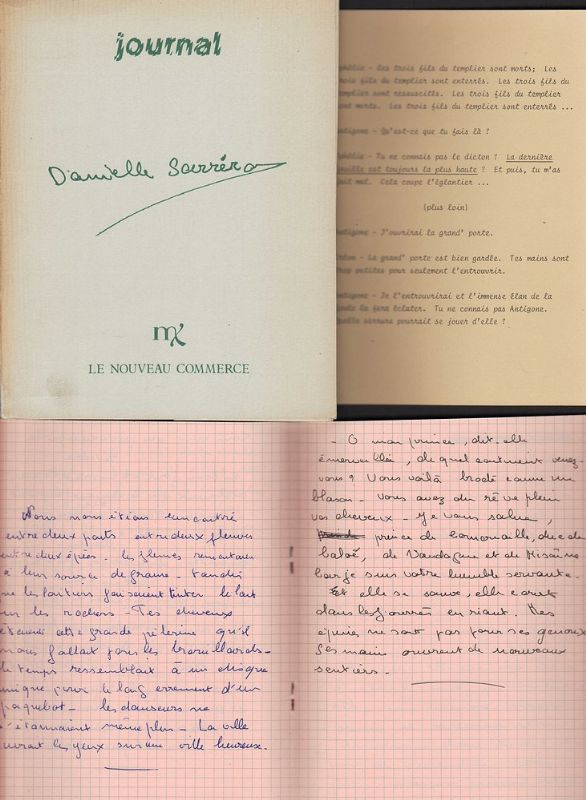 journal
Danielle Sarréra
LE NOUVEAU COMMERCE
Les trois fils du templier sont morts; Les
trois fils du templier sont enterrés. Les trois fils du
templier sont ressuscités. Les trois fils du templier
sont morts. Les trois fils du templier sont enterrés ...
Antigone - Qu'est-ce que tu fais là ?
Tu ne connais pas le dicton ? La dernière
est toujours la plus haute ! Et puis, tu m'as
fait mal. Cela coupe l'églantier ...
(plus loin)
Antigone - J'ouvrirai la grand' porte.
Créon - La grand' porte est bien gardée. Tes mains sont
trop petites pour seulement l'entrouvrir.
Antigone - Je l'entrouvrirai et l'immense élan de la
la fera éclater. Tu ne connais pas Antigone.
Quelle serrure pourrait se jouer d'elle ?
Nous nous étions rencontrés
entre deux ports entre deux fleuves
entre deux épées. les fleuves remontaient
à leur source de graine - tandis
que les laitiers faisaient tinter le lait
sur les rochers - Tes cheveux
grande pèlerine qu'il
nous fallait pour les brouillards -
le temps ressemblait à un disque
unique pour le long errement d'un
paquebot - les danseurs ne
s'étonnaient même plus - La ville
ouvrait les yeux sur une ville heureuse.
- O mon prince, dit-elle
émerveillée, de quel continent venez-
vous ? Vous voilà brodé comme un
blason - Vous avez du rêve plein
vos cheveux - Je vous salue,
prince de Cornouaille, duc de
et de
sur votre humble servante -
Et elle se sauve, elle court
dans les fourrés en riant. Les
épines ne sont pas pour ses genoux
Ses mains ouvrent de nouveaux
sentiers.